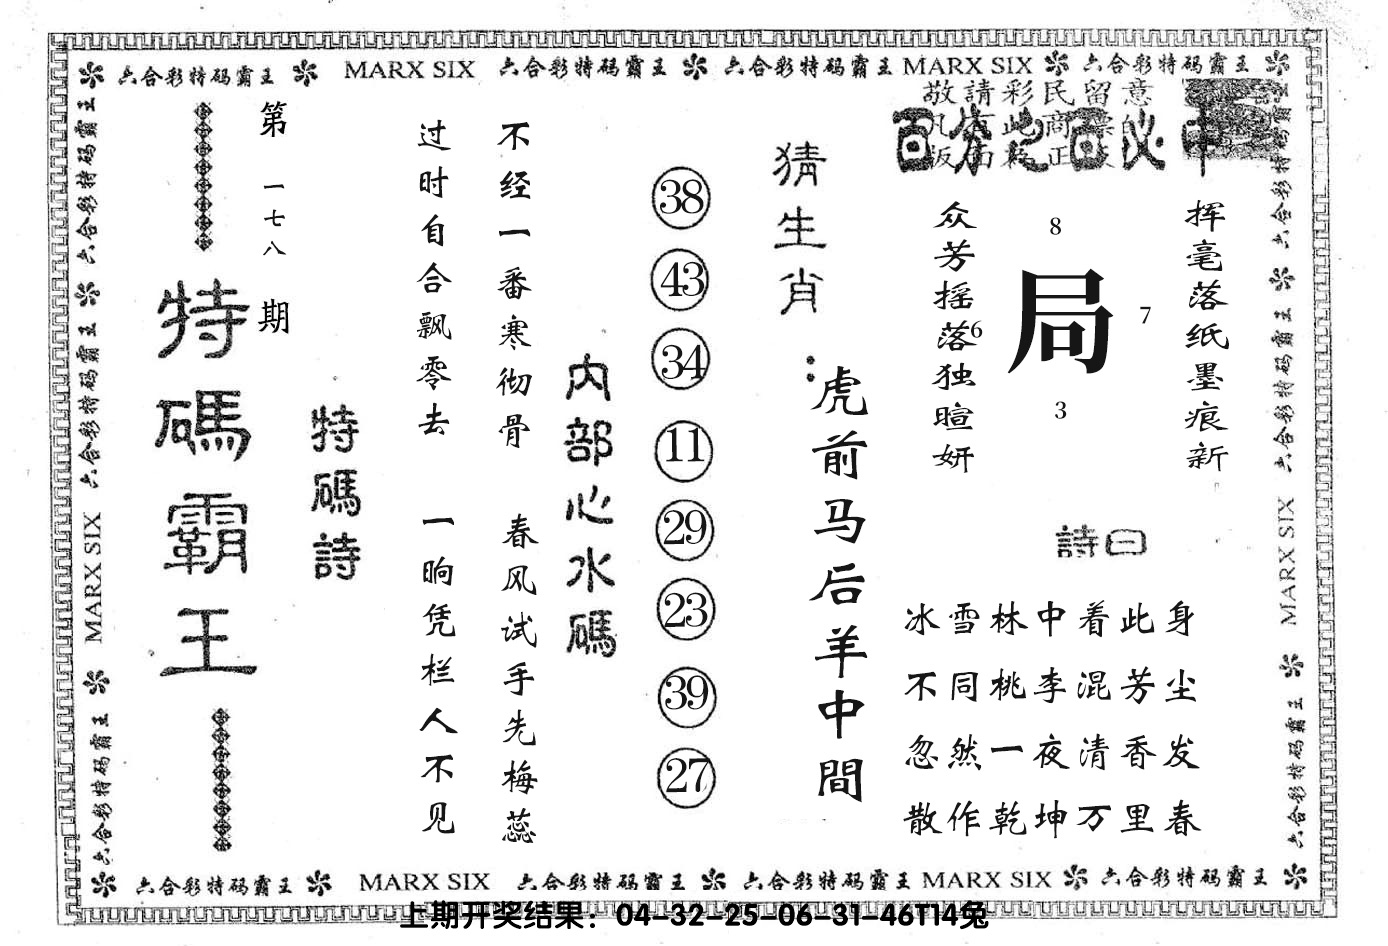 六合彩特码霸王 MARX SIX 六合彩特码霸王 六合彩特码霸王 MARX SIX 六合彩特码霸王
敬請彩民留意
百分之百必中
挥毫落纸墨痕新
8
局
6
7
3
众芳摇落独暄妍
詩曰
冰雪林中着此身
不同桃李混芳尘
忽然一夜清香发
散作乾坤万里春
猜生肖:
虎前马后羊中間
38
43
34
11
29
23
39
27
内部心水碼
不经一番寒彻骨
春风试手先梅蕊
过时自合飘零去
一晌凭栏人不见
特碼詩
第一七八期
特碼霸王
六合彩特码霸王
六合彩特码霸王
MARX SIX
六合彩特码霸王
六合彩特码霸王
六合彩特码霸王
MARX SIX
六合彩特码霸王
六合彩特码霸王 MARX SIX 六合彩特码霸王 六合彩特码霸王 MARX SIX 六合彩特码霸王
上期开奖结果：04-32-25-06-31-46T14兔